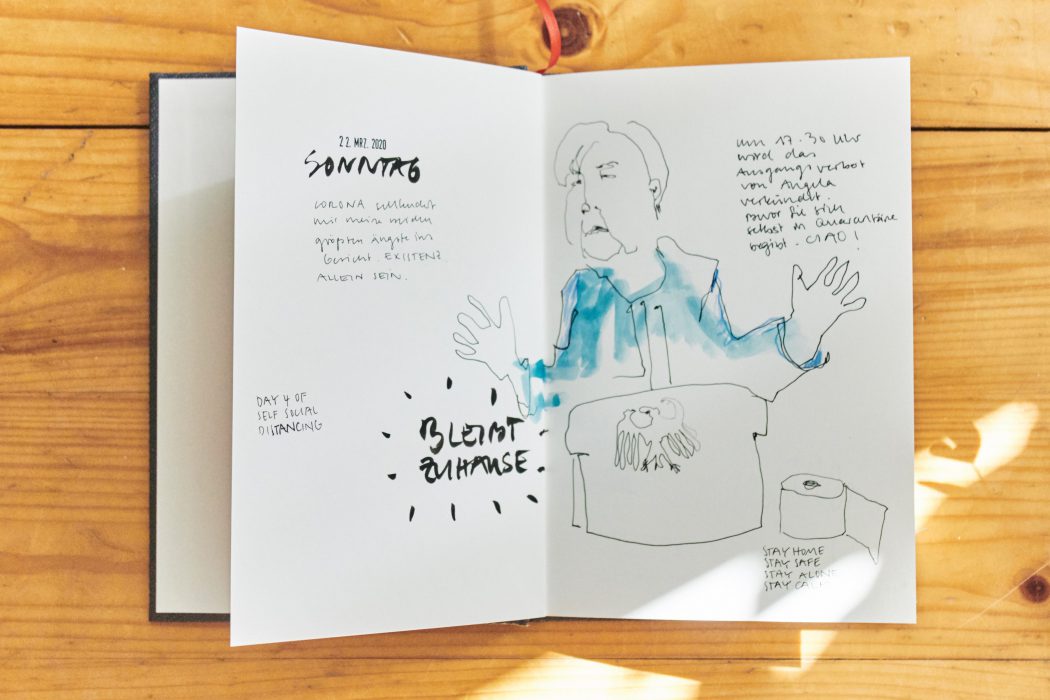 22. MRZ. 2020
SONNTAG
CORONA
mir meine beiden
größten Ängste ins
Gesicht. EXISTENZ
ALLEIN SEIN.
DAY 4 OF
SELF SOCIAL
DISTANCING
BLEIBT
ZUHAUSE
um 17.30 Uhr
wird das
Ausgangsverbot
von Angela
verkündet.
bevor sie sich
selbst in Quarantäne
begibt. CIAO!
STAY HOME
STAY SAFE
STAY ALONE
STAY CALM